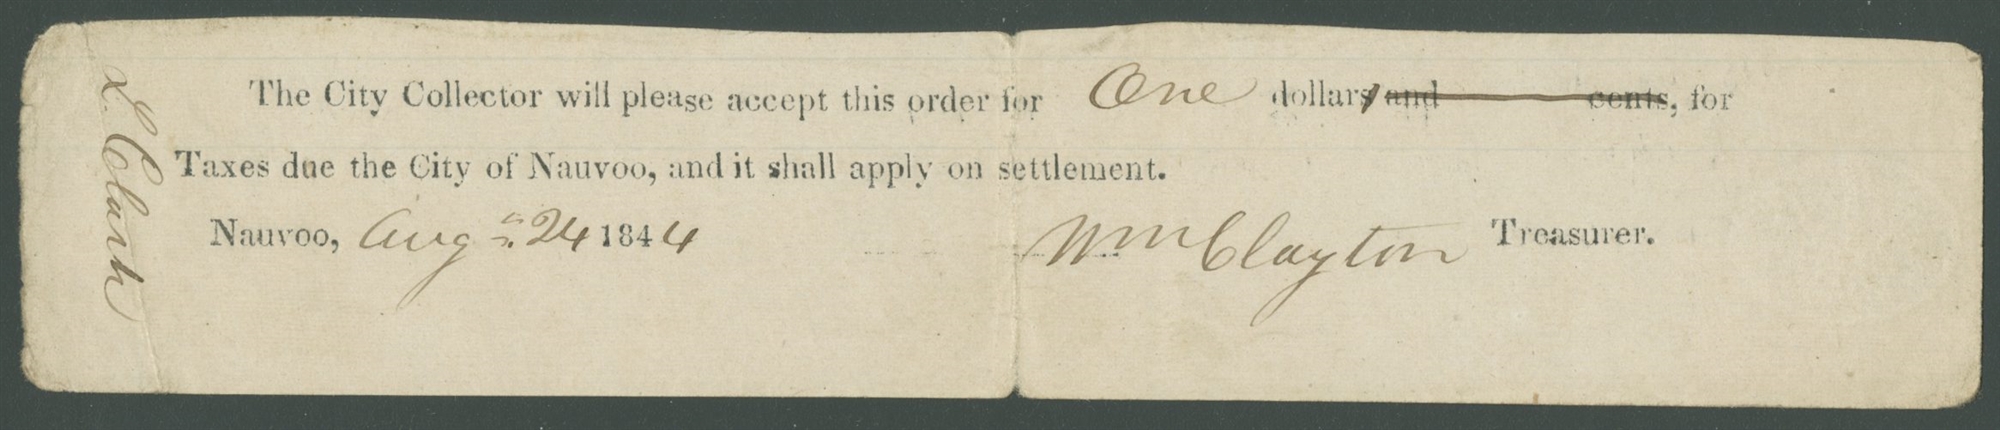 The City Collector will please accept this order for One dollar, and cents, for
Taxes due the City of Nauvoo, and it shall apply on settlement.
Nauvoo, Augt. 24 1844 Wm Clayton Treasurer.
L. Clark